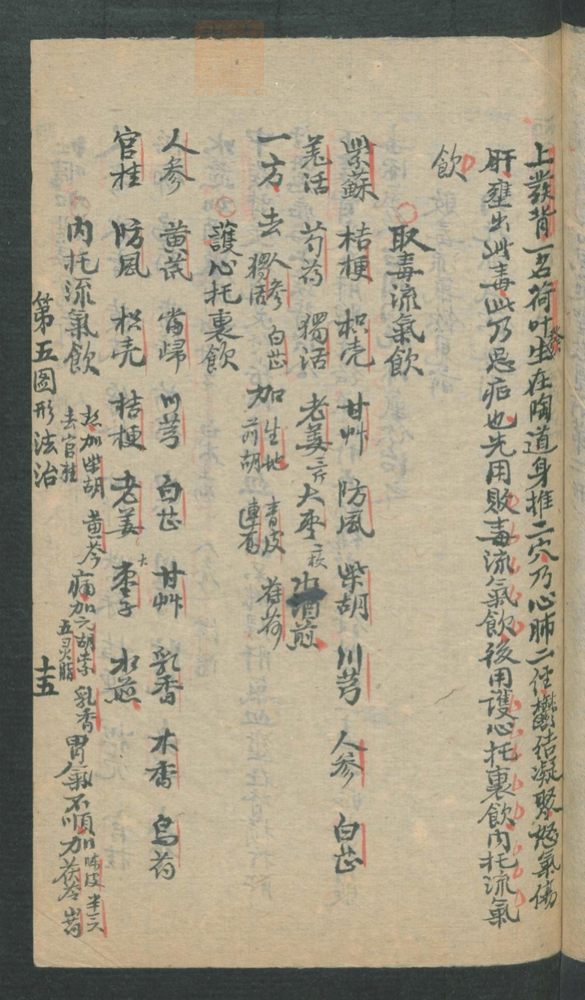 上發背一名荷叶發生在陶道身推二穴乃心肺二经鬱结凝聚怒氣傷
肝壅出此毒此乃恶疮也先用敗毒流氣飲後用護心托裏飲内托流氣
飲
○取毒流氣飲
紫蘇 桔梗 枳壳 甘艸 防風 柴胡 川芎 人参 白芷
羌活 芍药 獨活 老姜三片 大枣二枚 水酒煎
一方去人参 獨活 白芷 加生地 前胡 青皮 連翘 薄荷
○護心托裏飲
人参 黄茋 當歸 川芎 白芷 甘艸 乳香 木香 烏药
官桂 防風 枳壳 桔梗 老姜 大枣子 水煎
内托流氣飲 热加柴胡 黄芩 去官桂 痛加元胡索 五灵脂 乳香 胃氣不順加陈皮 半夏 加茯苓
第五图形法治 十五